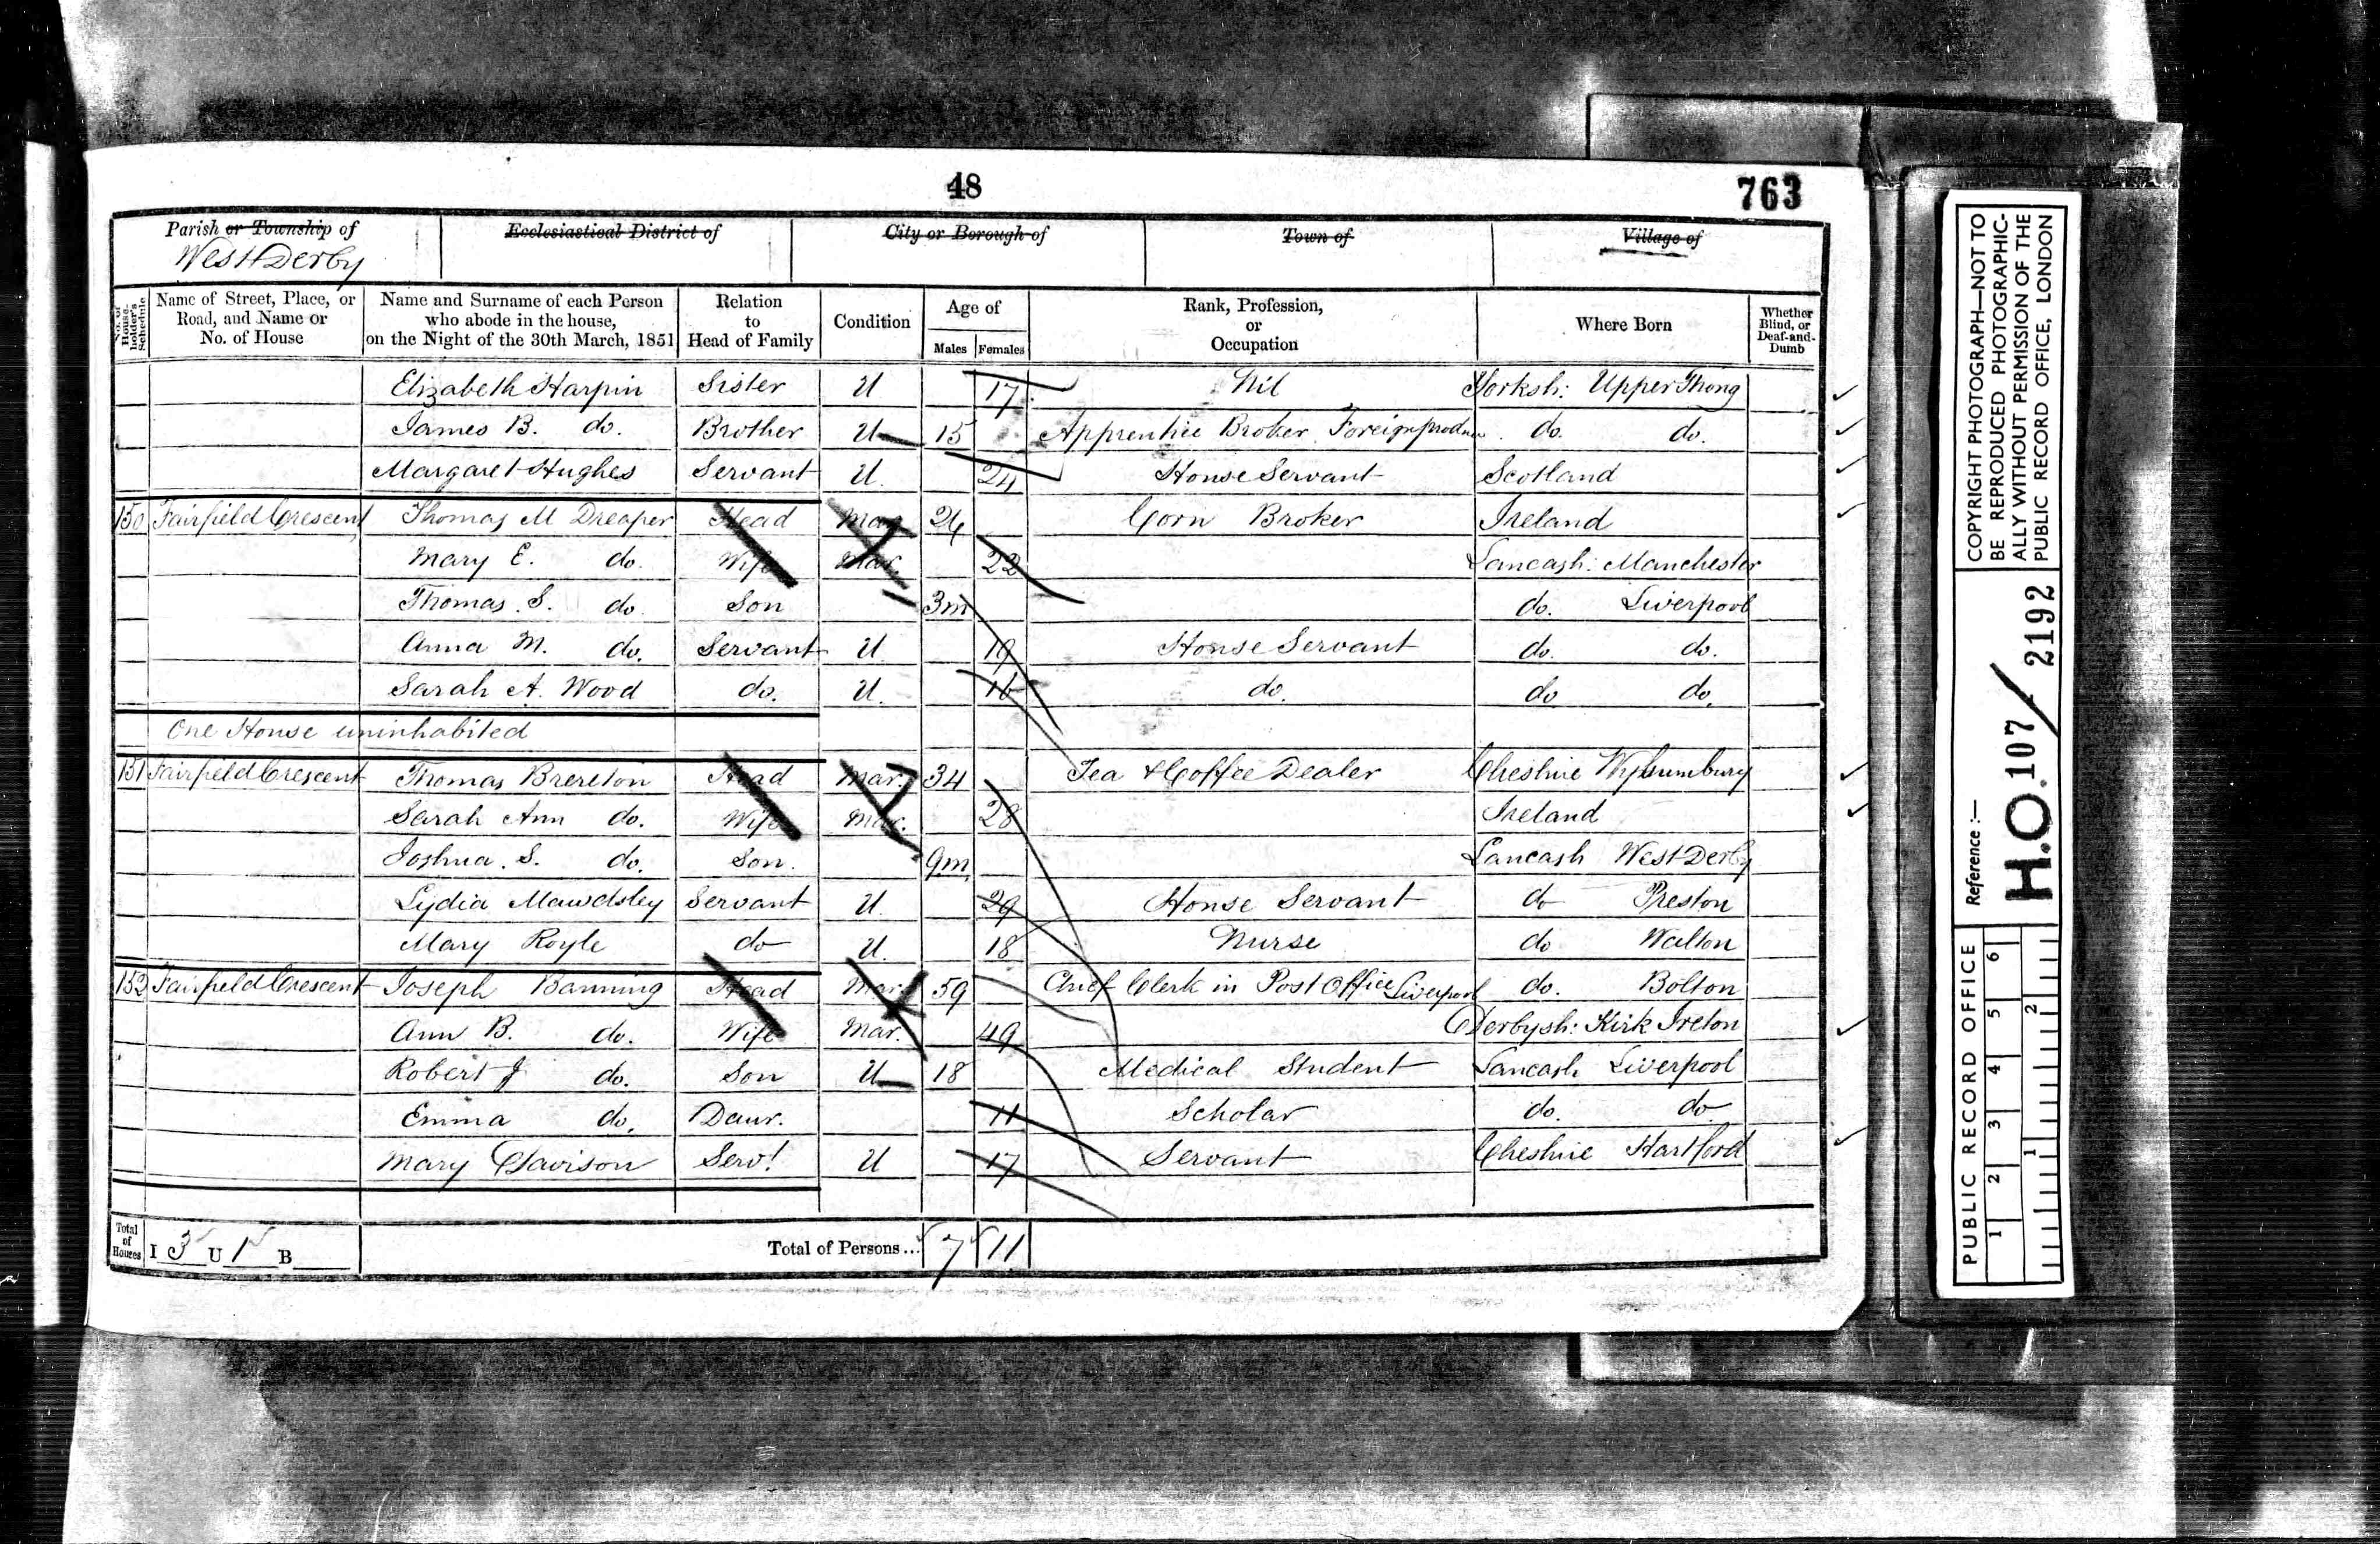 48
763
Parish or Township of
West Derby
Ecclesiastical District of
City or Borough of
Town of
Village of
No. of House-holder's Schedule
Name of Street, Place, or Road, and Name or No. of House
Name and Surname of each Person who abode in the house, on the Night of the 30th March, 1851
Relation to Head of Family
Condition
Age of
Males
Females
Rank, Profession, or Occupation
Where Born
Whether Blind, or Deaf-and-Dumb
Elizabeth Harpin Sister U 17 Nil Yorksh: Upper Thong
James B. do. Brother U 15 Apprentice Broker Foreign do. do.
Margaret Hughes Servant U. 24 House Servant Scotland
150 Fairfield Crescent Thomas M Dreaper Head Mar. Corn Broker Ireland
Mary E. do. Wife Mar. 22 Lancash: Manchester
Thomas. S. do. Son 3m do. Liverpool
Anna M. do. Servant U 19 House Servant do. do.
Sarah A. Wood do. U. 16 do. do do.
One House uninhabited
151 Fairfield Crescent Thomas Brereton Head Mar. 34 Tea & Coffee Dealer Cheshire
Sarah Ann do. Wife Mar. 28 Ireland
Joshua. S. do. Son. 9m Lancash West Derby
Lydia Mawdsley Servant U 29 House Servant do Preston
Mary Royle do U. 18 Nurse do Walton
152 Fairfield Crescent Joseph Banning Head Mar. 59 Chief Clerk in Post Office Liverpool do. Bolton
Ann B. do. Wife Mar. 49 Derbysh: Kirk Ireton
Robert J do. Son U 18 Medical Student Lancash Liverpool
Emma do. Daur. 11 Scholar do. do
Mary Davison Servt U 17 Servant Cheshire Hartford
Total of Houses I 3 U 1 B
Total of Persons... 7 11
COPYRIGHT PHOTOGRAPH—NOT TO
BE REPRODUCED PHOTOGRAPHIC-
ALLY WITHOUT PERMISSION OF THE
PUBLIC RECORD OFFICE, LONDON
Reference :—
H.O. 107 / 2192
PUBLIC RECORD OFFICE
1 2 3 4 5 6
1 2